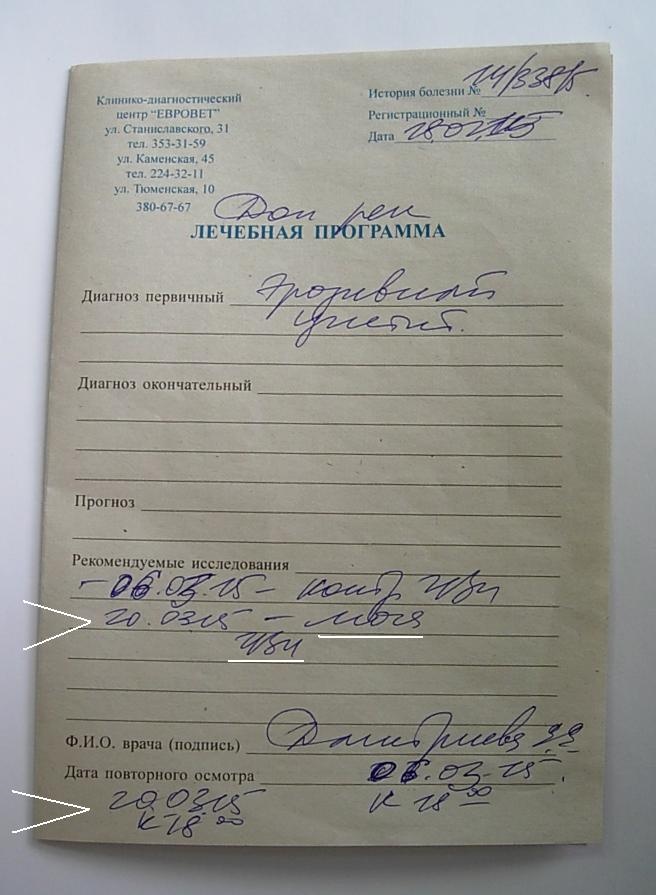 Клинико-диагностический
центр "ЕВРОВЕТ"
ул. Станиславского, 31
тел. 353-31-59
ул. Каменская, 45
тел. 224-32-11
ул. Тюменская, 10
380-67-67
История болезни № 14/338/5
Регистрационный №
Дата 28.02.15
Дон рен
ЛЕЧЕБНАЯ ПРОГРАММА
Диагноз первичный Эрозивный
цистит.
Диагноз окончательный
Прогноз
Рекомендуемые исследования
- 06.03.15 - контр УЗИ
20.03.15 - моча
УЗИ
Ф.И.О. врача (подпись)
Дата повторного осмотра 06.03.15.
20.03.15 к 18 00
к 18 00